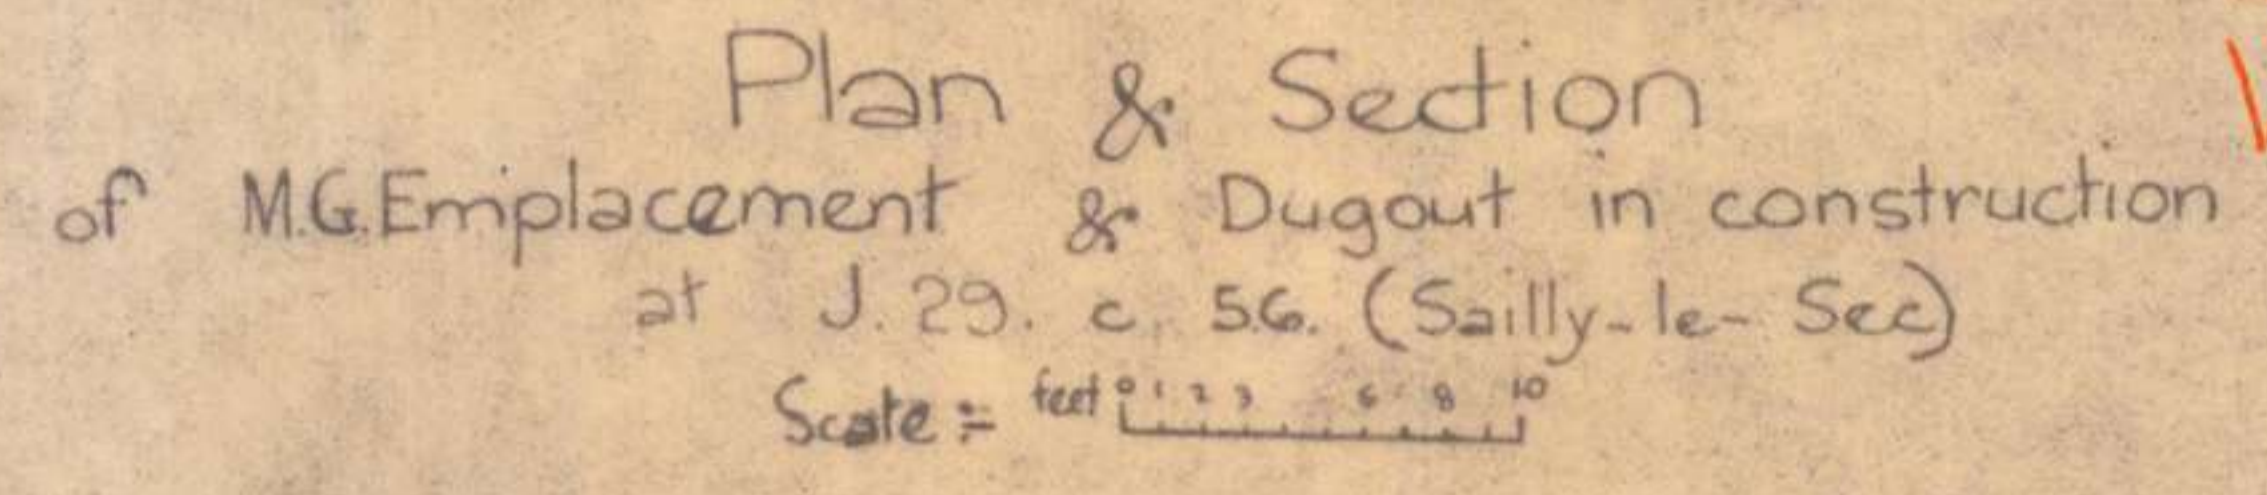 Plan & Section
of M.G. Emplacement & Dugout in construction
at J. 29. c. 5.6. (Sailly-le-Sec)
Scale := feet 0 1 2 3 6 8 10